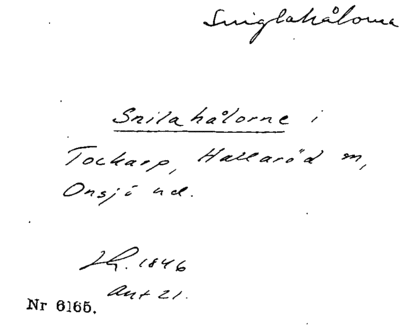 Sniglahålorna
Snilahålorne i
Tockarp, Hallaröd sn,
Onsjö hd.
1846
Ant 21.
Nr 6165.